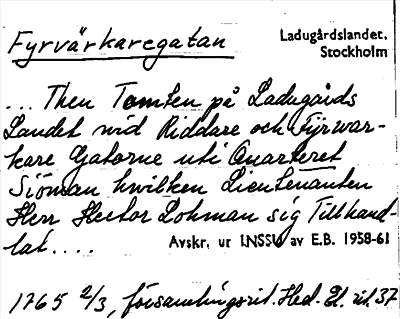 Fyrvärkaregatan
Ladugårdslandet,
Stockholm
... Then Tomten på Ladugårds
Landet wid Riddare och Fyrwar-
kare Gatorne uti Quarteret
Siöman hwilken Lieutenanten
Herr Hector Lohman sig Tillhand-
lat....
Avskr. ur INSSU av E.B. 1958-61
1765 2/3, församlingsrit. Hed. El. rit. 37